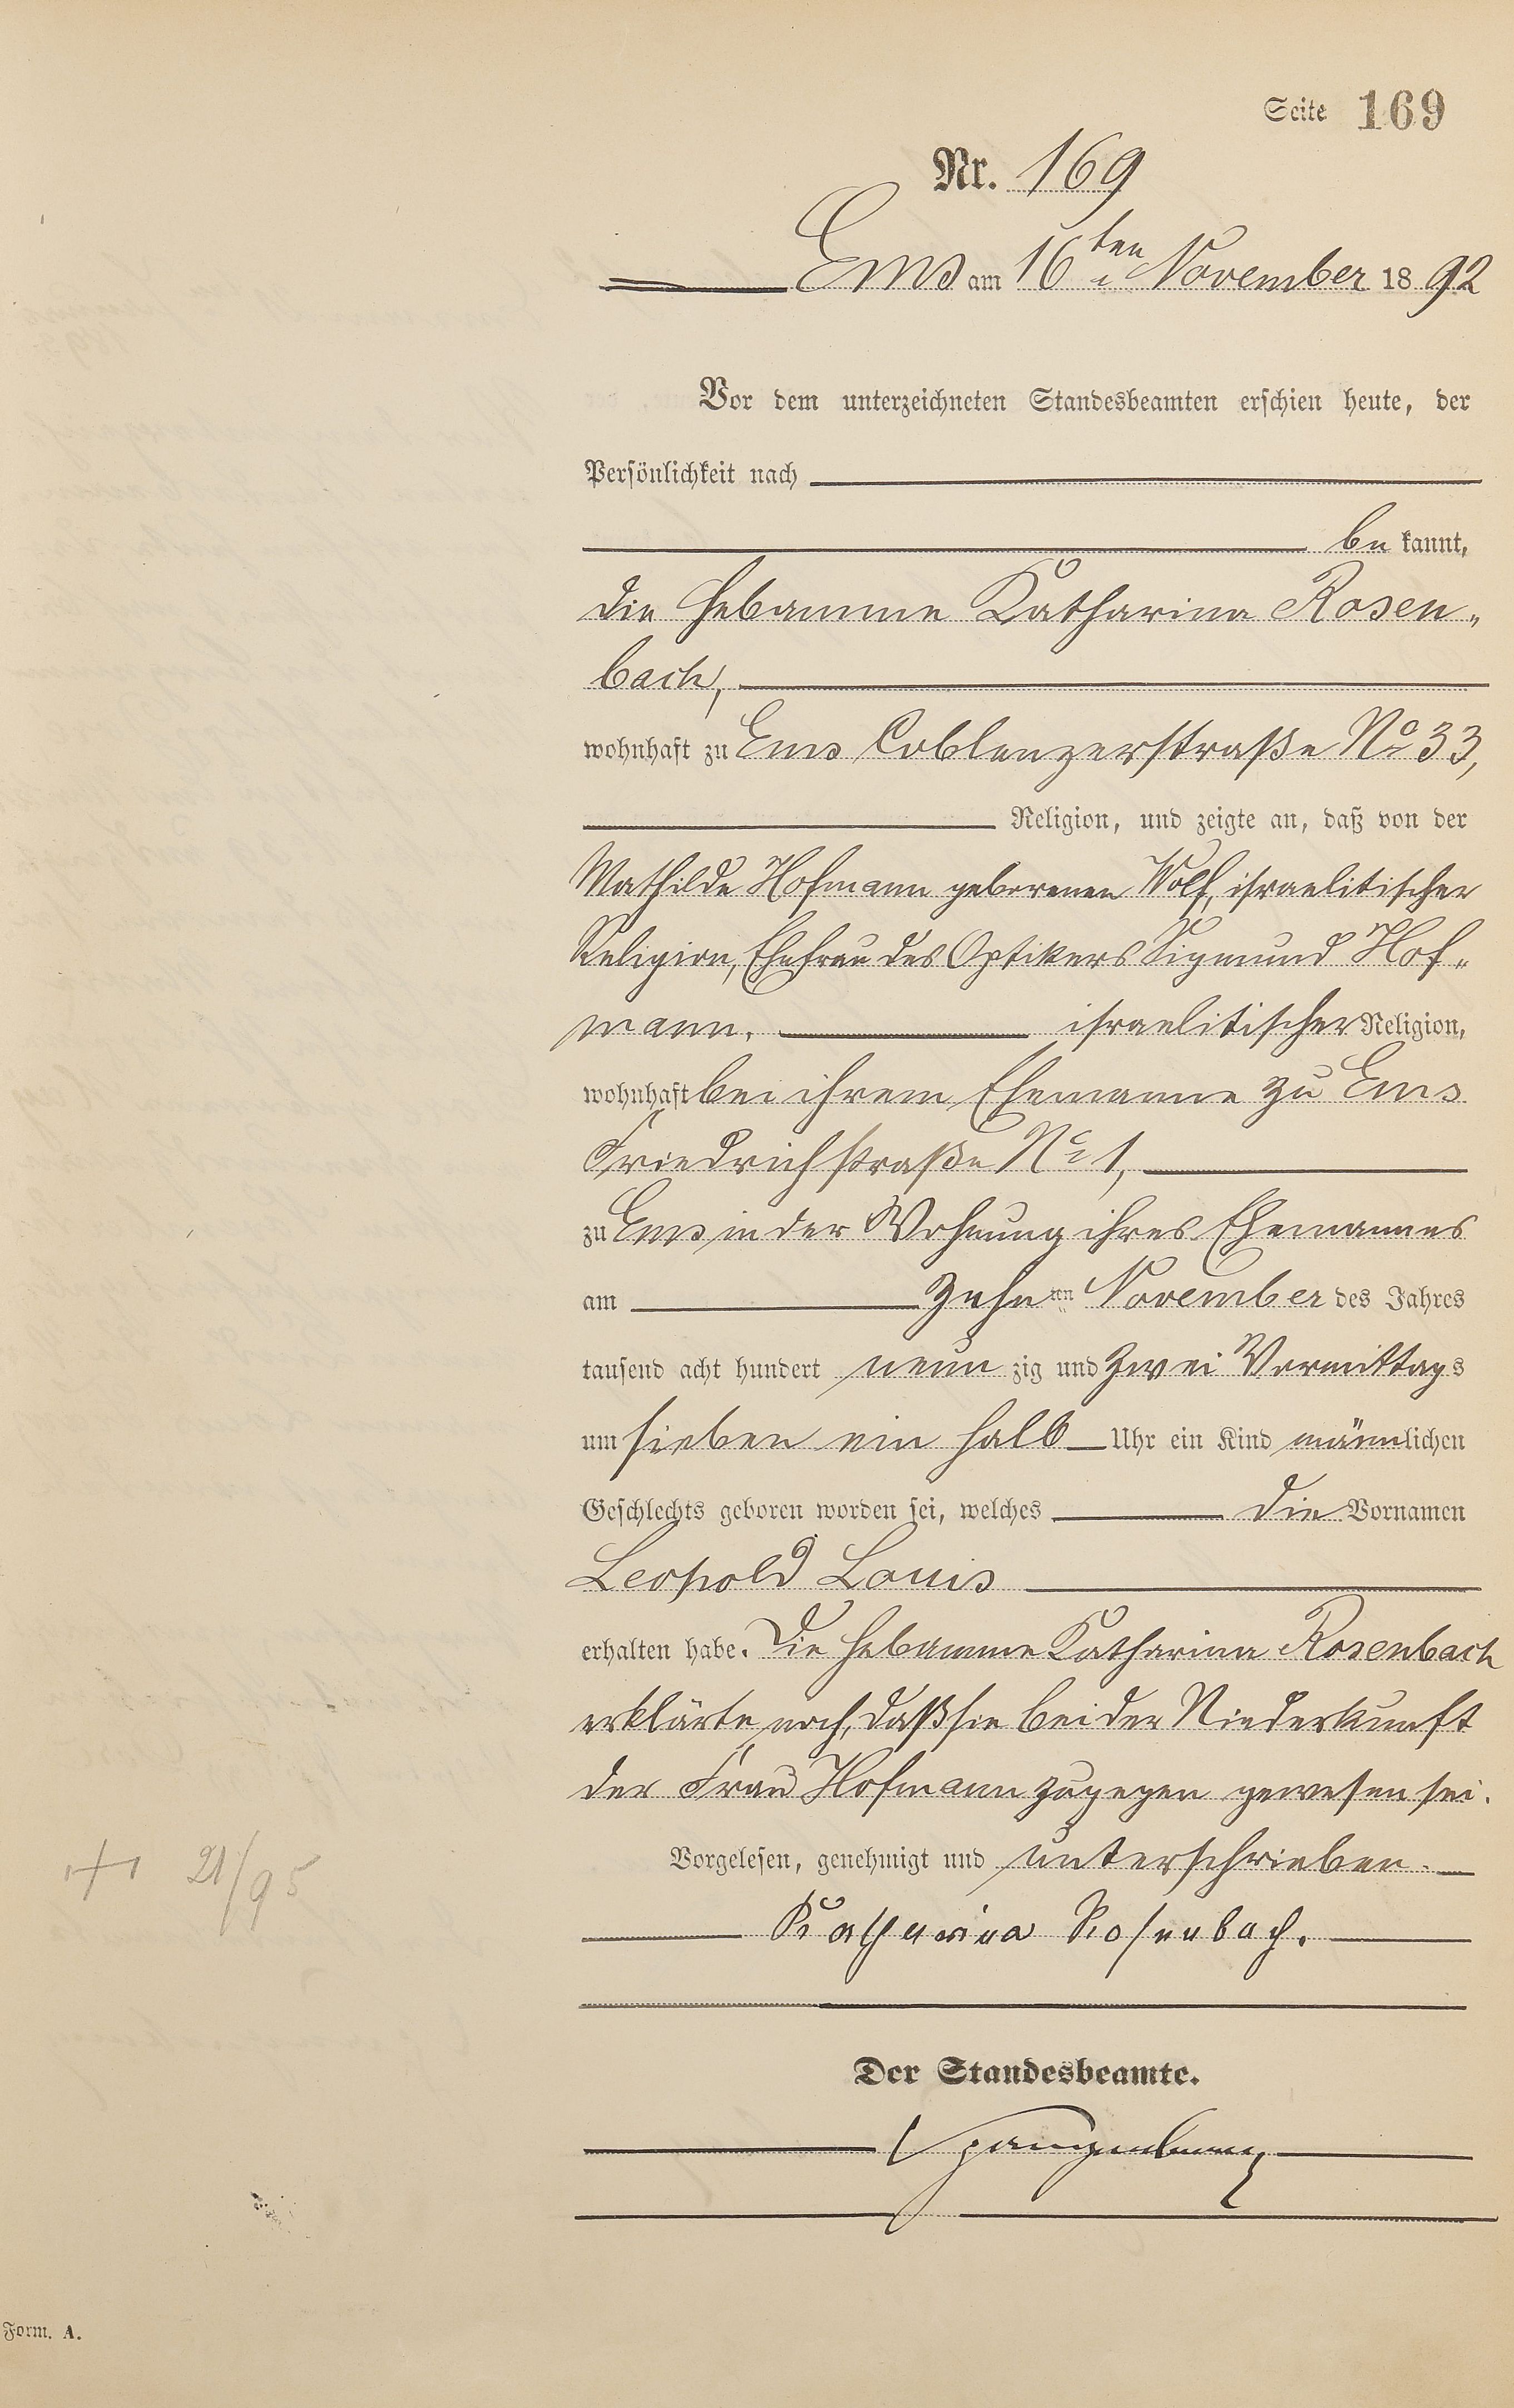 Seite 169
Nr. 169
Ems am 16ten November 1892
Vor dem unterzeichneten Standesbeamten erschien heute, der
Persönlichkeit nach
bekannt,
die Hebamme Katharina Rosen„
bach,
wohnhaft zu Ems Coblenzerstraße No 33,
Religion, und zeigte an, daß von der
Mathilde Hofmann geborenen Wolf, israelitischer
Religion, Ehefrau des Optikers Sigmund Hof„
mann, israelitischer Religion,
wohnhaft bei ihrem Ehemanne zu Ems
Friedrichstraße No 1,
zu Ems in der Wohnung ihres Ehemannes
am Zehnten November des Jahres
tausend acht hundert neunzig und Zwei Vormittags
um sieben ein halb Uhr ein Kind männlichen
Geschlechts geboren worden sei, welches die Vornamen
Leopold Louis
erhalten habe. Die Hebamme Katharina Rosenbach
erklärte noch, daß sie bei der Niederkunft
der Frau Hofmann zugegen gewesen sei.
Vorgelesen, genehmigt und unterschrieben.
21/95
Katharina Rosenbach.
Der Standesbeamte.
Form. A.